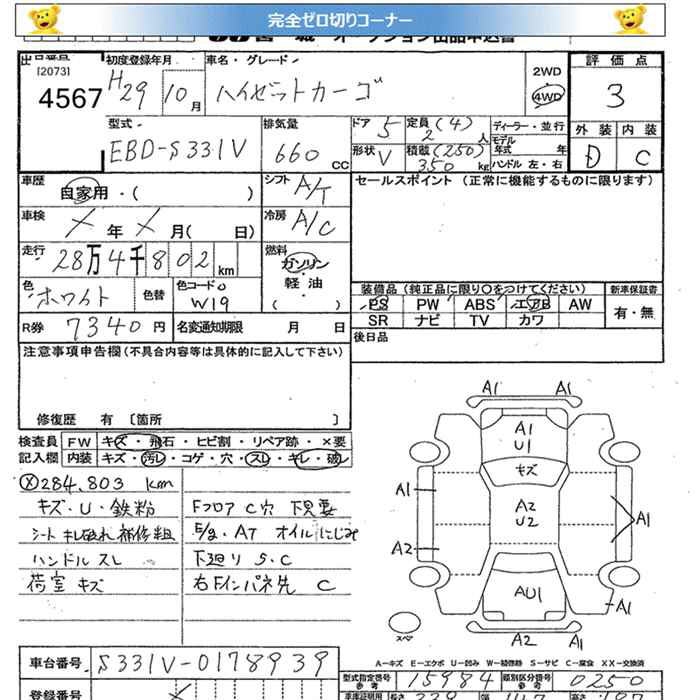 完全ゼロ切りコーナー
[2073]
4567
初度登録年月
H29 10月
車名・グレード
ハイゼットカーゴ
2WD
4WD
評価点
3
外装 内装
D C
型式
EBD-S331V
排気量
660 cc
ドア 5
定員(4)
2 人
ディーラー・並行
モデル年式 年
形状 V
積載(250)
350 kg
ハンドル 左・右
車歴
自家用・( )
シフト A/T
セールスポイント (正常に機能するものに限ります)
車検
× 年 × 月( 日)
冷房 A/C
走行
28万4千802 km
燃料
ガソリン・軽油
( )
色
ホワイト
色替
色コードNo
W19
装備品(純正品に限り○をつけてください)
新車保証書
PS PW ABS エアB AW
SR ナビ TV カワ
有・無
R券 7340円
名変通知期限 月 日
後日品
注意事項申告欄(不具合内容等は具体的に記入して下さい)
修復歴 有 〔箇所 〕
検査員記入欄
FW キズ・飛石・ヒビ割・リペア跡・×要
内装 キズ・汚レ・コゲ・穴・スレ・キレ・破レ
× 284,803 km
キズ・U・鉄粉
シート キレ破れ 補修粗
ハンドル スレ
荷室 キズ
Fフロア C穴 下見要
E/g・AT オイルにじみ
下廻り S・C
右Fインパネ先 C
A1 A1
A1
U1
キズ
A1
A2
U2
A1
A2
AU1
A1
スペア
A2 A1
A-キズ E-エクボ U-凹み W-補修跡 S-サビ C-腐食 XX-交換済
車台番号 S331V-0178939
型式指定番号 参考 15984
類別区分番号 参考 0250
登録番号